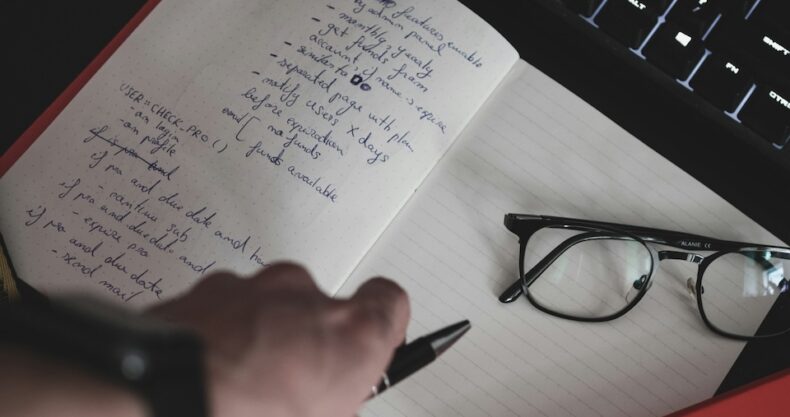 features enable
by admin panel
- monthly, yearly
- get funds from
account, if none -> expire
- similar to DO
- separated page with plan
- notify users X days
before expiration
email [ no funds
funds available
USER=CHECK-PRO()
- on login
- on profile
if pro and due date and
- continue sub
if pro and due date and
- expire pro
if pro and due date
- send mail
ALANIE CE
ALT
FN
SHIFT
CTRL